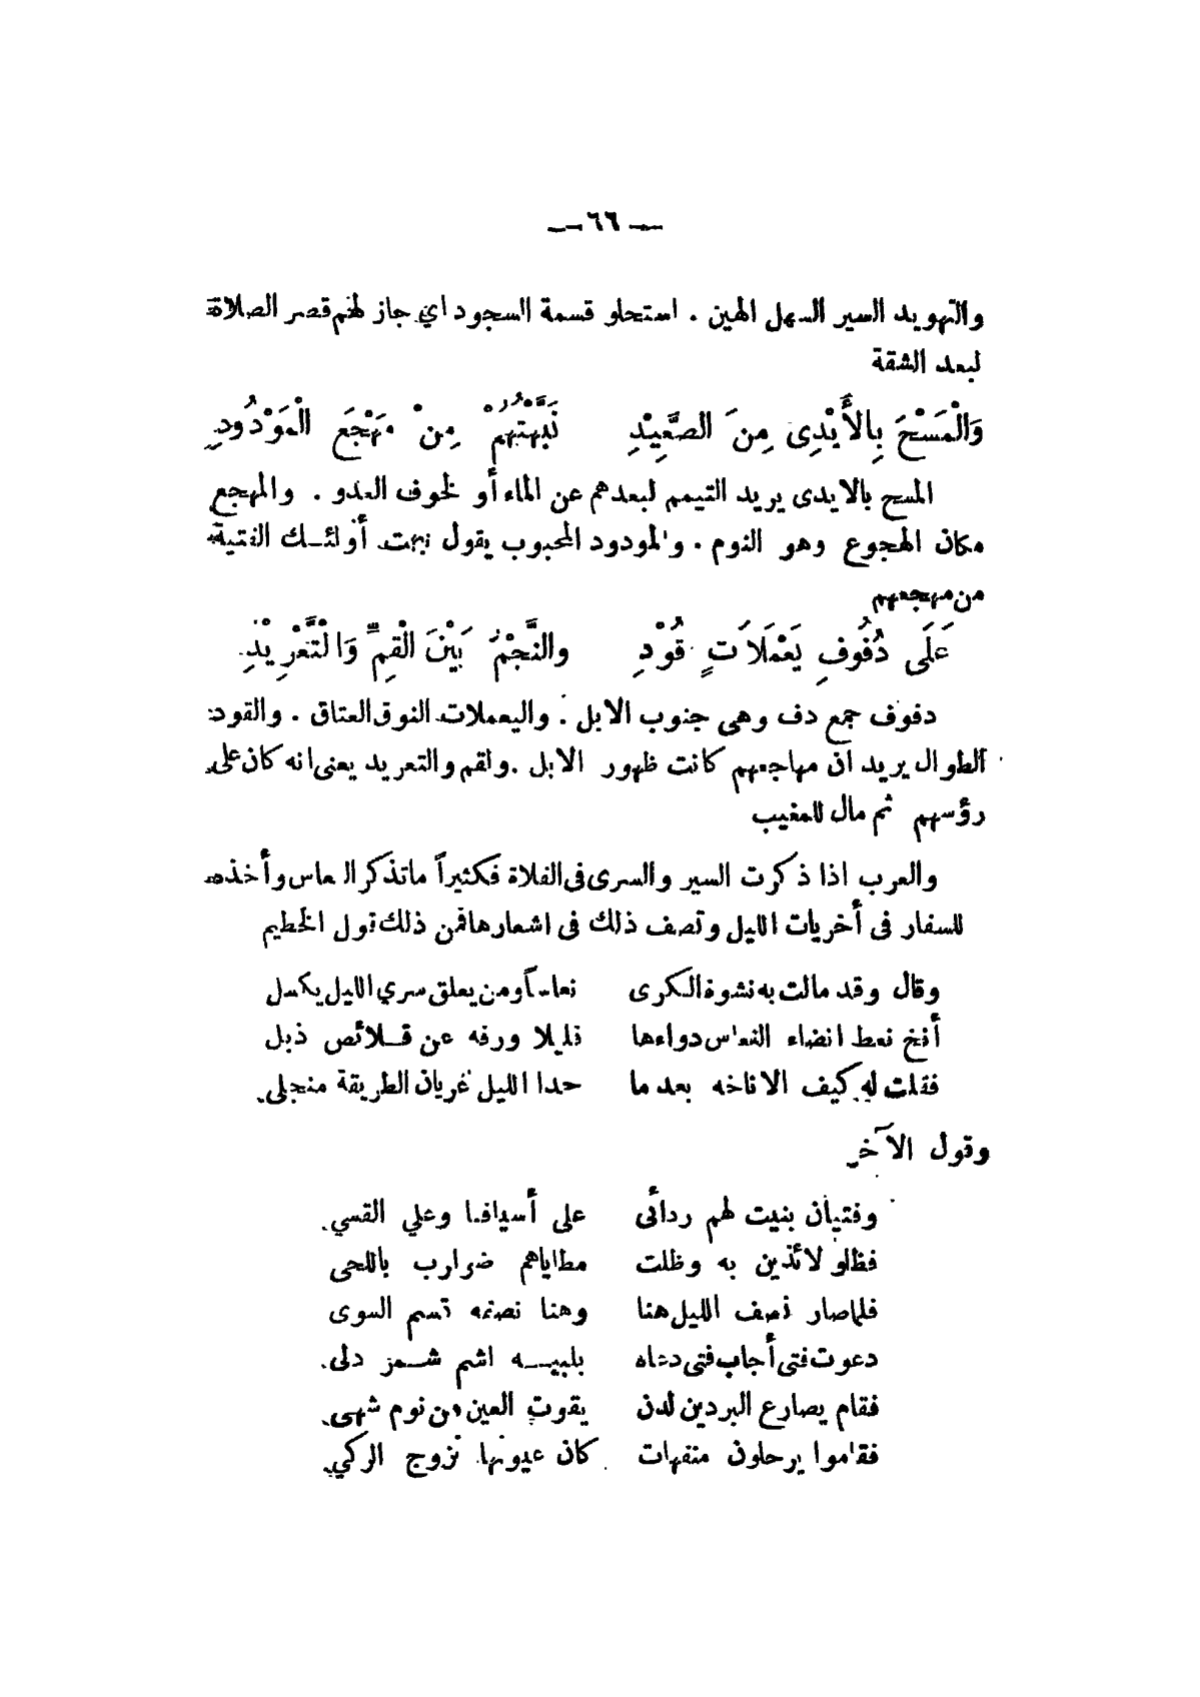 — ٦٦ —
والتهويد السير السهل الهين . استحلو قسمة السجود اي جاز لهم قصر الصلاة
لبعد الشقة
وَالْمَسْحَ بِالأَيْدِى مِنَ الصَّعِيْدِ نَبَّهْتُهُمْ مِنْ مَهْجَعِ الْمَوْدُودِ
المسح بالايدى يريد التيمم لبعدهم عن الماء أو لخوف العدو . والمهجع
مكان الهجوع وهو النوم . والمودود المحبوب يقول نبهت أولئك الفتية
من مهجعهم
عَلَى دُفُوفِ يَعْمَلاَتٍ قُوْدِ والنَّجْمُ بَيْنَ الْقِمِّ وَالتَّعْرِيْدِ
دفوف جمع دف وهى جنوب الابل . واليعملات النوق العتاق . والقود
الطوال يريد ان مهاجعهم كانت ظهور الابل . ولقم والتعريد يعنى انه كان على
رؤسهم ثم مال للمغيب
والعرب اذا ذكرت السير والسرى فى الفلاة فكثيراً ما تذكر النعاس وأخذه
للسفار فى أخريات الليل وتصف ذلك فى اشعارها فمن ذلك قول الخطيم
وقال وقد مالت به نشوة الكرى نعاساً ومن يعلق سري الليل يكسل
أنخ نعط انضاء النعاس دواءها قليلا ورفه عن قلائص ذبل
فقلت له كيف الاناخه بعد ما حدا الليل غريان الطريقة منجلى
وقول الآخر
وفتيان بنيت لهم ردائى على أسيافنا وعلي القسي
فظلو لائذين به وظلت مطاياهم ضوارب باللحى
فلما صار نصف الليل هنا وهنا نصفه قسم السوى
دعوت فتى أجاب فتى دعاه بلبيه اشم شمر دلى
فقام يصارع البردين لدن يقوت العين من نوم شهى
فقاموا يرحلون منفهات كان عيونها نزوح الركي